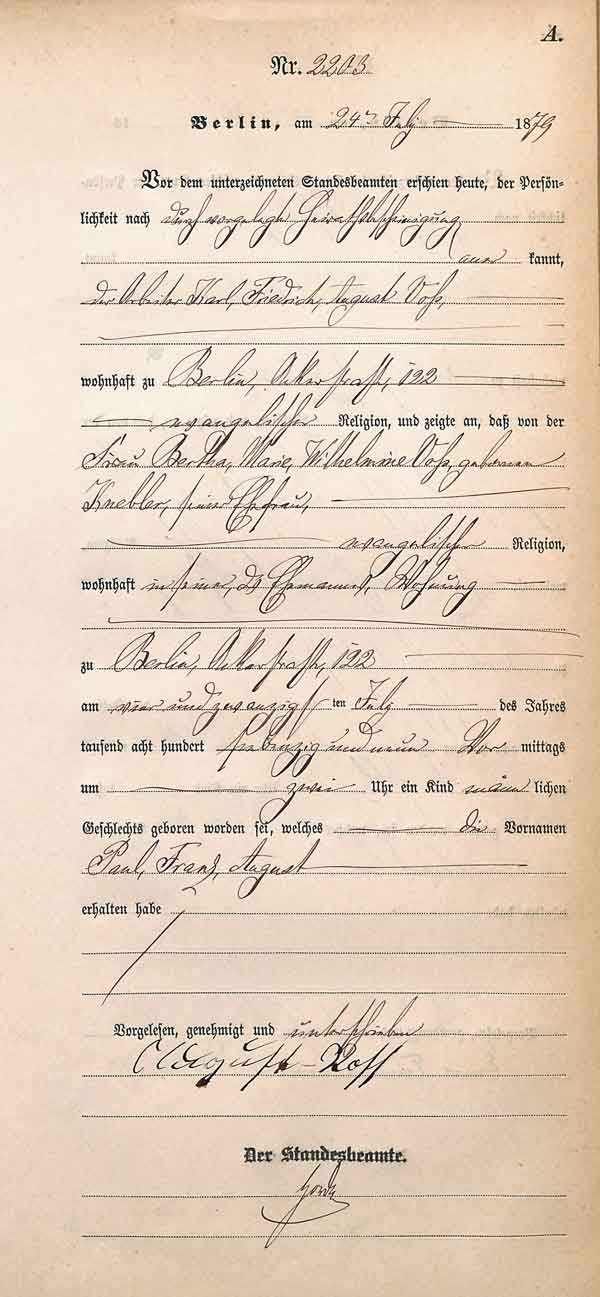 A.
Nr. 2203
Berlin, am 24ten July 1879
Vor dem unterzeichneten Standesbeamten erschien heute, der Persön-
lichkeit nach durch vorgelegte Heirathsbescheinigung
aner kannt,
der Arbeiter Karl, Friedrich, August Voß,
wohnhaft zu Berlin, Ackerstraße, 122
evangelischer Religion, und zeigte an, daß von der
Frau Bertha, Marie, Wilhelmine Voß, geborenen
Knebler, seiner Ehefrau,
evangelischer Religion,
wohnhaft in seiner, des Ehemannes, Wohnung
zu Berlin, Ackerstraße, 122
am vier und zwanzig ten July des Jahres
tausend acht hundert siebenzig und neun Vor mittags
um zwei Uhr ein Kind männ lichen
Geschlechts geboren worden sei, welches die Vornamen
Paul, Franz, August
erhalten habe
Vorgelesen, genehmigt und unterschrieben
August Voß
Der Standesbeamte.